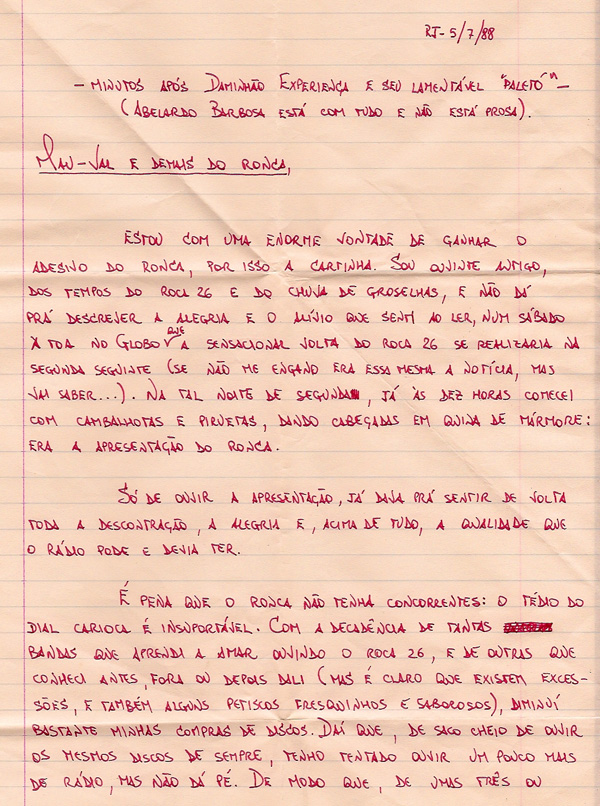 RJ - 5/7/88
- MINUTOS APÓS DAMINHÃO EXPERIENÇA E SEU LAMENTÁVEL "PALETÓ" -
(ABELARDO BARBOSA ESTÁ COM TUDO E NÃO ESTÁ PROSA).
MAU-VAL E DEMAIS DO RONCA,
ESTOU COM UMA ENORME VONTADE DE GANHAR O
ADESIVO DO RONCA, POR ISSO A CARTINHA. SOU OUVINTE ANTIGO,
DOS TEMPOS DO ROCA 26 E DO CHUVA DE GROSELHAS, E NÃO DÁ
PRÁ DESCREVER A ALEGRIA E O ALÍVIO QUE SENTI AO LER, NUM SÁBADO
À TOA NO GLOBO QUE A SENSACIONAL VOLTA DO ROCA 26 SE REALIZARIA NA
SEGUNDA SEGUINTE (SE NÃO ME ENGANO ERA ESSA MESMA A NOTÍCIA, MAS
VAI SABER...). NA TAL NOITE DE SEGUNDA, JÁ ÀS DEZ HORAS COMECEI
COM CAMBALHOTAS E PIRUETAS, DANDO CABEÇADAS EM QUINA DE MÁRMORE:
ERA A APRESENTAÇÃO DO RONCA.
SÓ DE OUVIR A APRESENTAÇÃO, JÁ DAVA PRÁ SENTIR DE VOLTA
TODA A DESCONTRAÇÃO, A ALEGRIA E, ACIMA DE TUDO, A QUALIDADE QUE
O RÁDIO PODE E DEVIA TER.
É PENA QUE O RONCA NÃO TENHA CONCORRENTES: O TÉDIO DO
DIAL CARIOCA É INSUPORTÁVEL. COM A DECADÊNCIA DE TANTAS
BANDAS QUE APRENDI A AMAR OUVINDO O ROCA 26, E DE OUTRAS QUE
CONHECI ANTES, FORA OU DEPOIS DALI (MAS É CLARO QUE EXISTEM EXCES-
SÕES, E TAMBÉM ALGUNS PETISCOS FRESQUINHOS E SABOROSOS), DIMINUÍ
BASTANTE MINHAS COMPRAS DE DISCOS. DAÍ QUE, DE SACO CHEIO DE OUVIR
OS MESMOS DISCOS DE SEMPRE, TENHO TENTADO OUVIR UM POUCO MAIS
DE RÁDIO, MAS NÃO DÁ PÉ. DE MODO QUE, DE UMAS TRÊS OU